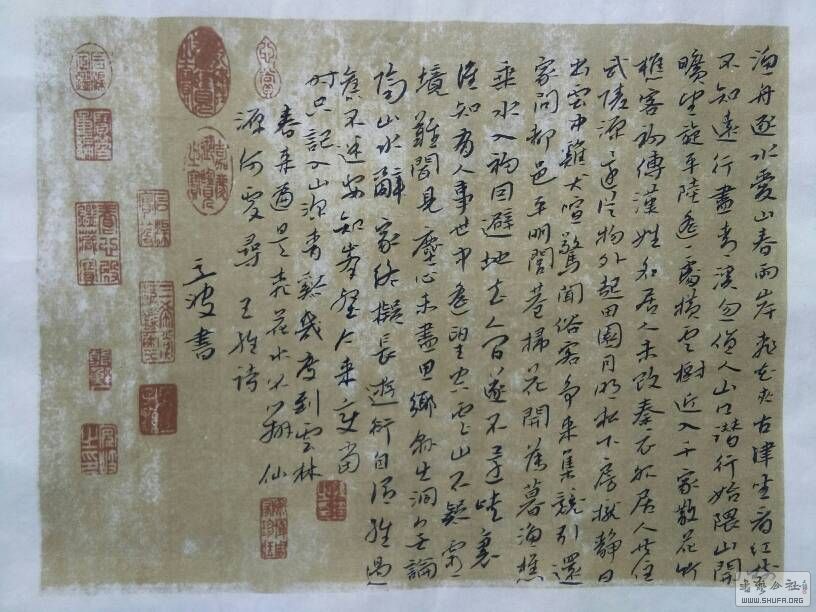 漁舟逐水愛山春兩岸桃花夾古津坐看紅樹
不知遠行盡青溪忽值人山口潜行始隈山開
曠望旋平陸遥看一處攢雲樹近入千家散花竹
樵客初傳漢姓名居人未改秦衣服居人共住
武陵源還從物外起田園月明松下房櫳静日
出雲中雞犬喧驚聞俗客争來集競引還
家問都邑平明閭巷掃花開薄暮漁樵
乘水入初因避地去人間遂不還峽裏
誰知有人事世中遥望空雲山不疑靈
境難聞見塵心未盡思鄉縣出洞無論
隔山水辭家終擬長遊衍自謂經過
舊不迷安知峯壑今來變當
時只記入山深青谿幾度到雲林
春來遍是桃花水不辨仙
源何處尋 王維诗
波書
WWW.SHUFA.ORG